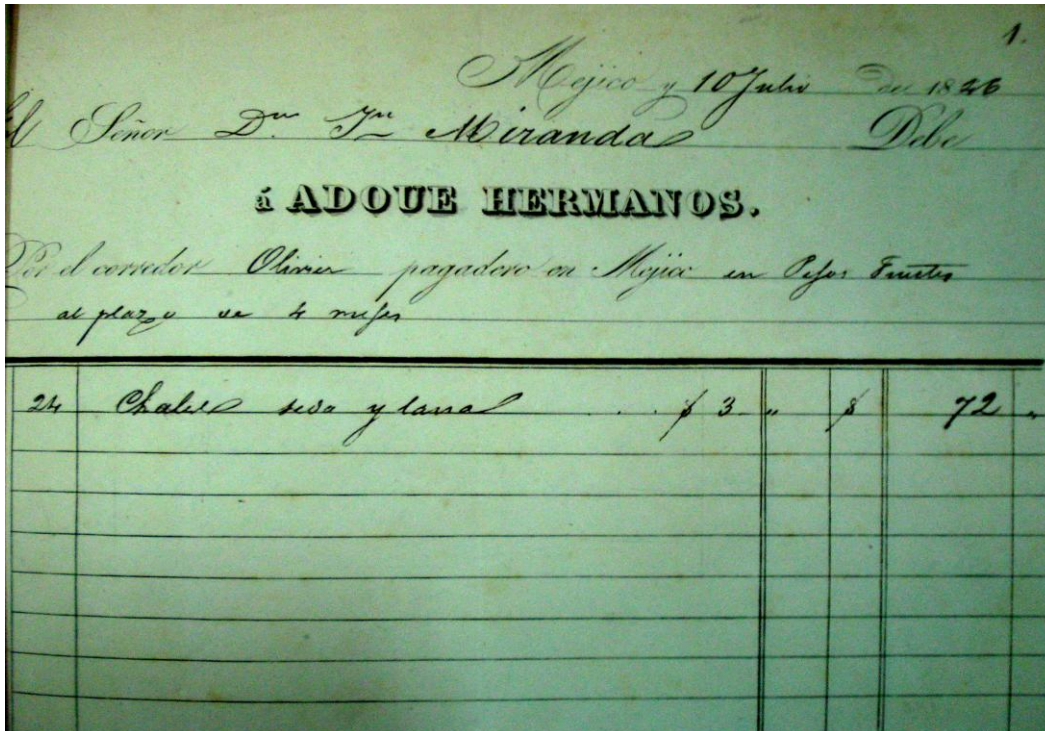 1.
Mejico y 10 Julio De 1846
El Señor Dn Jn Miranda Debe
á ADOUE HERMANOS.
Por el corredor Olivier pagadero en Mejico en Pesos Fuertes
al plazo de 4 meses
24 Chales seda y lana . . . $ 3 " $ 72 "